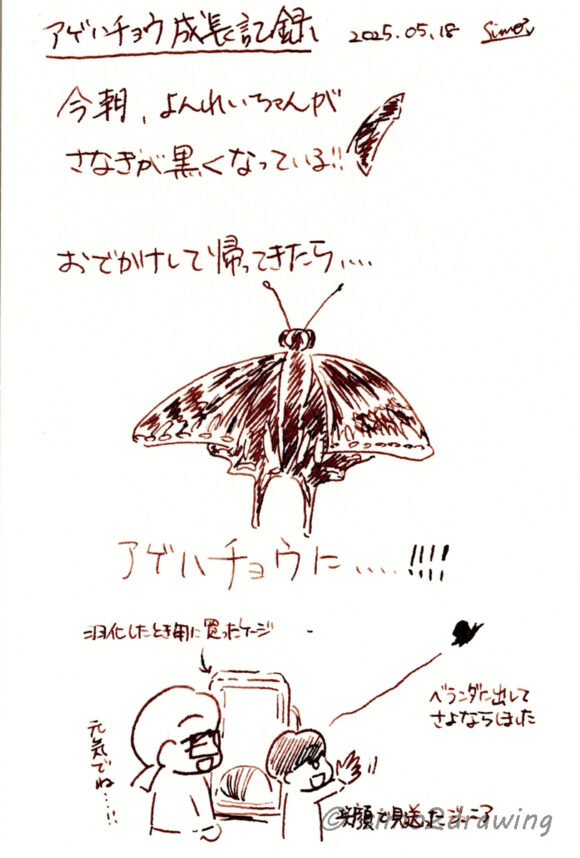 アゲハチョウ成長記録 2025.05.18
今朝、よんれいちゃんが
さなぎが黒くなっている!!
おでかけして帰ってきたら....
アゲハチョウに....!!!!
羽化したとき用に買ったケージ
ベランダに出して
さよならしました
元気でね...!!
笑顔で見送ったジュニア